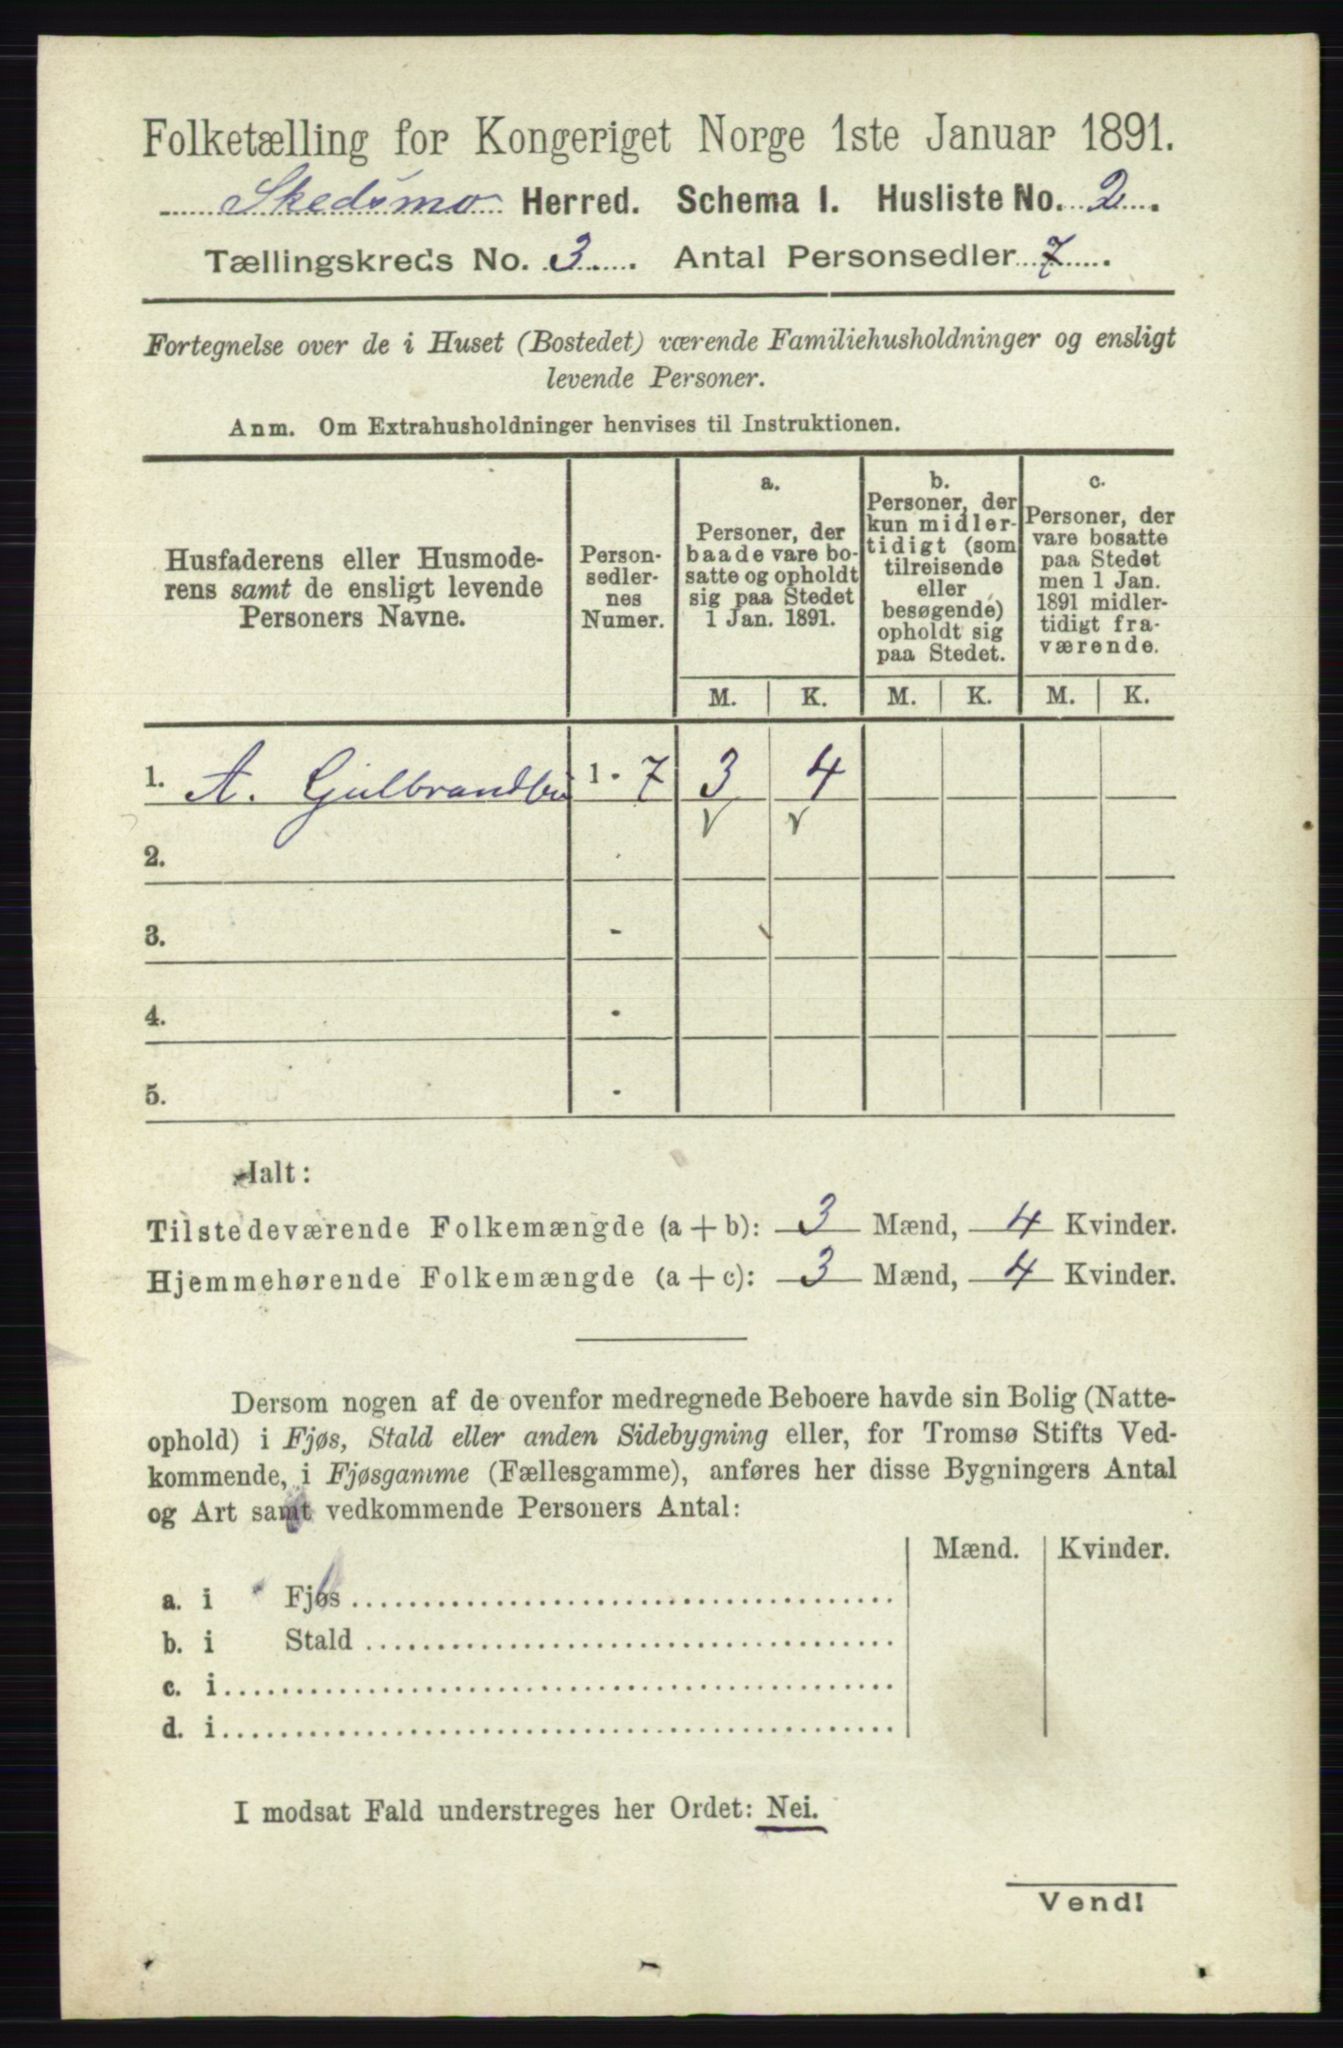 Folketælling for Kongeriget Norge 1ste Januar 1891.
Skedsmo Herred. Schema I. Husliste No. 2.
Tællingskreds No. 3. Antal Personsedler 7.
Fortegnelse over de i Huset (Bostedet) værende Familiehusholdninger og ensligt
levende Personer.
Anm. Om Extrahusholdninger henvises til Instruktionen.
Husfaderens eller Husmode-
rens samt de ensligt levende
Personers Navne.
Person-
sedler-
nes
Numer.
a.
Personer, der
baade vare bo-
satte og opholdt
sig paa Stedet
1 Jan. 1891.
b.
Personer, der
kun midler-
tidigt (som
tilreisende
eller
besøgende)
opholdt sig
paa Stedet.
c.
Personer, der
vare bosatte
paa Stedet
men 1 Jan.
1891 midler-
tidigt fra-
værende.
M. K. M. K. M. K.
1. A. Gulbrandsen 1 - 7 3 4
2.
3. -
4. -
5. -
Ialt:
Tilstedeværende Folkemængde (a + b): 3 Mænd, 4 Kvinder.
Hjemmehørende Folkemængde (a + c): 3 Mænd, 4 Kvinder.
Dersom nogen af de ovenfor medregnede Beboere havde sin Bolig (Natte-
ophold) i Fjøs, Stald eller anden Sidebygning eller, for Tromsø Stifts Ved-
kommende, i Fjøsgamme (Fællesgamme), anføres her disse Bygningers Antal
og Art samt vedkommende Personers Antal:
Mænd. Kvinder.
a. i Fjøs
b. i Stald
c. i
d. i
I modsat Fald understreges her Ordet: Nei.
Vend!